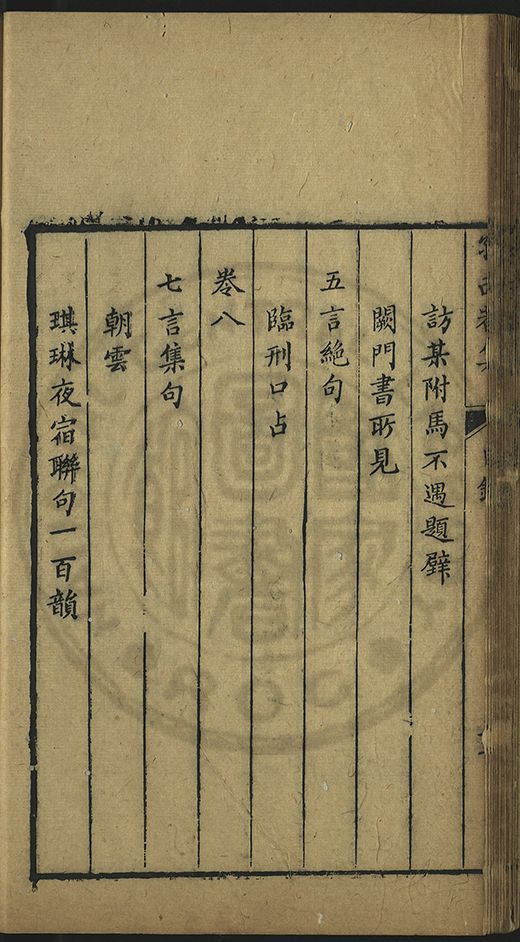 訪某附馬不遇題壁
闕門書所見
五言絶句
臨刑口占
卷八
七言集句
朝雲
琪琳夜宿聯句一百韻